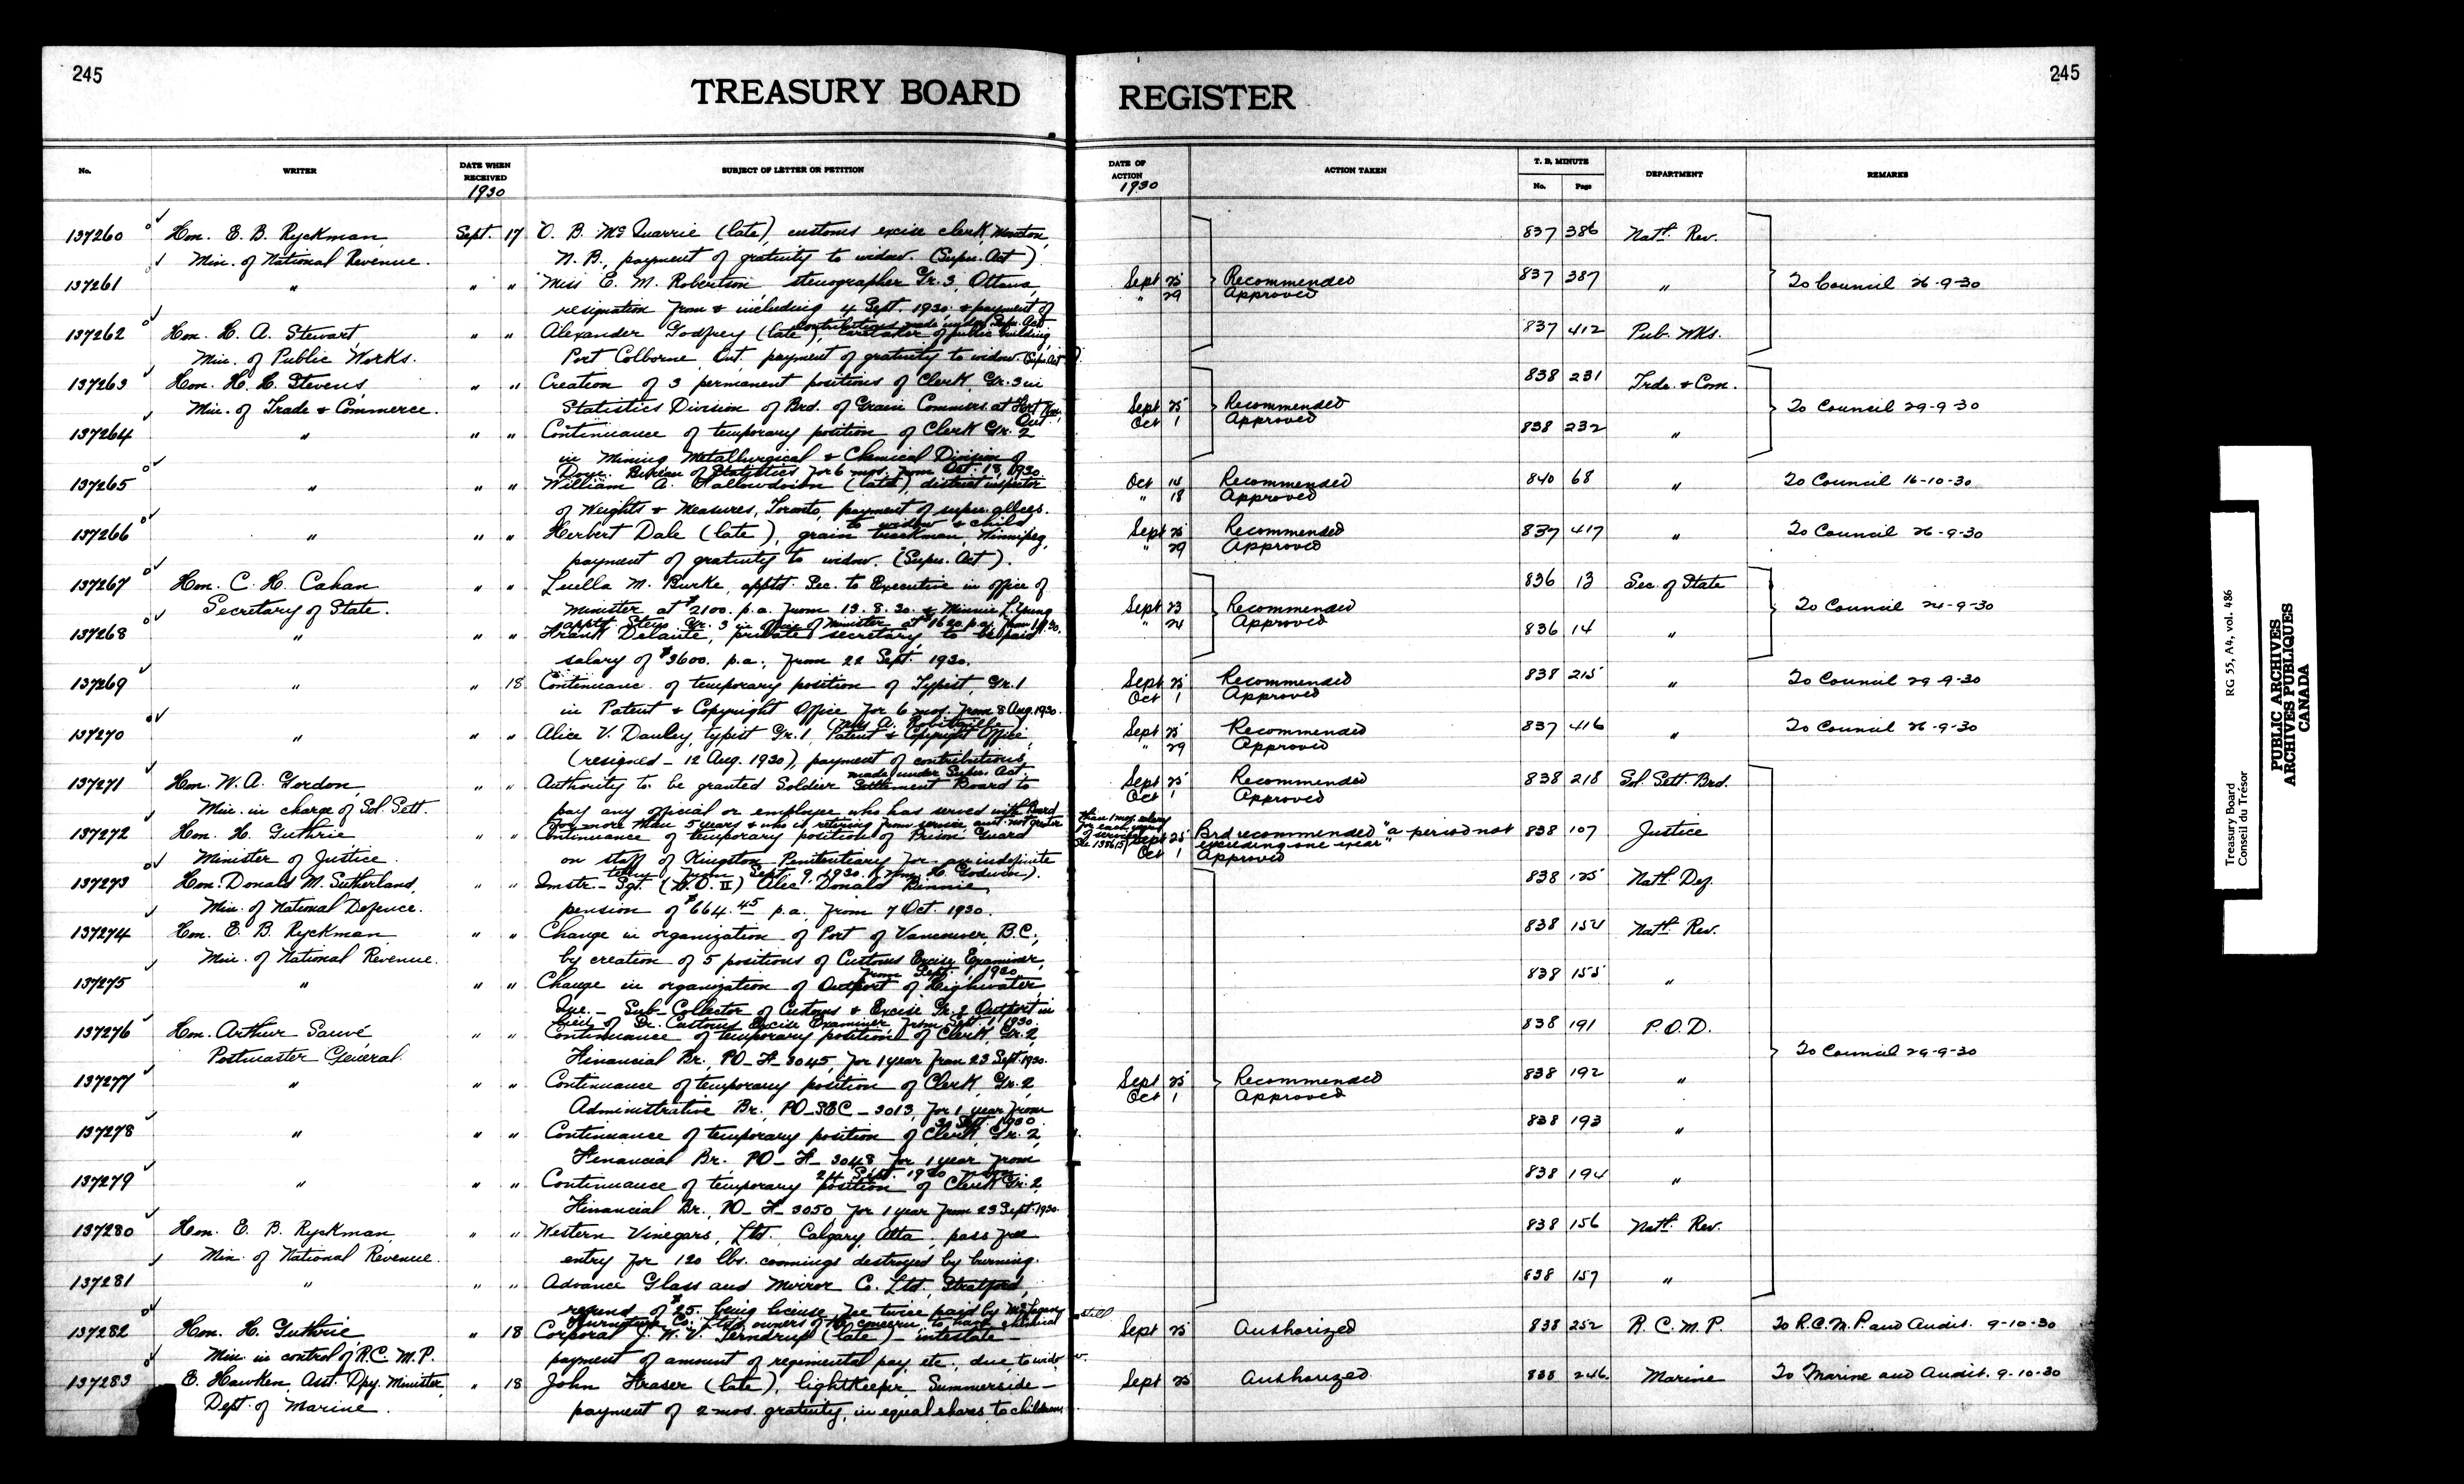 245
TREASURY BOARD REGISTER
245
No. WRITER DATE WHEN RECEIVED 1930 SUBJECT OF LETTER OR PETITION DATE OF ACTION 1930 ACTION TAKEN T. B. MINUTE No. Page DEPARTMENT REMARKS
137260 Hon. E. B. Ryckman, Sept. 17 O. B. McQuarrie (late), customs excise clerk, Moncton, 837 386 Natl. Rev.
Min. of National Revenue. N. B., payment of gratuity to widow. (Supn. Act)
137261 " " " Miss E. M. Robertson stenographer Gr. 3, Ottawa, Sept 25 Recommended 837 387 " To Council 26-9-30
" 29 Approved
resignation from & including 4 Sept. 1930 & payment of
contributions made under Supn. Act
137262 Hon. H. A. Stewart, " " Alexander Godfrey (late), caretaker of public building, 837 412 Pub. Wks.
Min. of Public Works. Port Colborne, Ont. payment of gratuity to widow (Supn. Act).
137263 Hon. H. H. Stevens, " " Creation of 3 permanent positions of Clerk, Gr. 3 in 838 231 Trde. & Com.
Min. of Trade & Commerce. Statistics Division of Brd. of Grain Commrs. at Fort Wm., Ont. Sept 25 Recommended To Council 29-9-30
Oct 1 Approved
137264 " " " Continuance of temporary position of Clerk Gr. 2 838 232 "
in Mining Metallurgical & Chemical Division of
Dom. Bureau of Statistics for 6 mos. from Oct. 18, 1930
137265 " " " William A. (late), district inspector Oct 14 Recommended 840 68 " To Council 16-10-30
" 18 Approved
of Weights & Measures, Toronto, payment of super. allces.
to widow & child
137266 " " " Herbert Dale (late), grain trackman, Winnipeg, Sept 25 Recommended 837 417 " To Council 26-9-30
" 29 Approved
payment of gratuity to widow. (Supn. Act).
137267 Hon. C. H. Cahan " " Luella M. Burke, apptd. Sec. to Executive in office of 836 13 Sec. of State
Secretary of State. Minister at $2100. p.a. from 13. 8. 30. & Minnie L. Young Sept 23 Recommended To Council 24-9-30
apptd. Steno. Gr. 3 in office of Minister at $1620. p.a. from " 24 Approved
137268 " " " Frank Delaute, private secretary, to be paid 836 14 "
salary of $3600. p.a., from 22 Sept. 1930.
137269 " " 18 Continuance of temporary position of Typist, Gr. 1 Sept 25 Recommended 838 215 " To Council 29-9-30
Oct 1 Approved
in Patent & Copyright Office for 6 mos. from 8 Aug. 1930.
(Mrs A. Robitaille)
137270 " " " Alice V. Danley, typist Gr. 1, Patent & Copyright Office, Sept 25 Recommended 837 416 " To Council 26-9-30
" 29 Approved
(resigned - 12 Aug. 1930), payment of contributions
made under Supn. Act.
137271 Hon. W. A. Gordon, " " Authority to be granted Soldier Settlement Board to Sept 25 Recommended 838 218 Sol. Sett. Brd.
Oct 1 Approved
Min. in charge of Sol. Sett. pay any official or employee who has served with Board
for more than 5 years & who is retiring from service amt. not greater than 1 mos. salary for each year of service
137272 Hon. H. Guthrie " " Continuance of temporary position of Prison Guard Sept 25 Brd recommended "a period not exceeding one year" 838 107 Justice
Oct 1 Approved
Minister of Justice. on staff of Kingston Penitentiary for an indefinite
term from Sept. 9, 1930. (Wm. H. Godwin).
137273 Hon. Donald M. Sutherland, " " Instr. - Sgt. (W. O. II) Alec Donald Rennie, 838 125 Natl. Def.
Min. of National Defence. pension of $664.45 p.a. from 7 Oct. 1930.
137274 Hon. E. B. Ryckman " " Change in organization of Port of Vancouver, B.C., 838 154 Natl. Rev.
Min. of National Revenue. by creation of 5 positions of Customs Excise Examiner,
from Sept. 1, 1930
137275 " " " Change in organization of Outport of Highwater, 838 155 "
Que. - Sub-Collector of Customs & Excise Gr. 2 Outport in
lieu of Dr. Customs Excise Examiner from Sept. 1, 1930
137276 Hon. Arthur Sauvé " " Continuance of temporary position of Clerk, Gr. 2, 838 191 P.O.D.
Postmaster General. Financial Br., PO-F-3045, for 1 year from 23 Sept. 1930. To Council 29-9-30
137277 " " " Continuance of temporary position of Clerk, Gr. 2, Sept 25 Recommended 838 192 "
Oct 1 Approved
Administrative Br., PO-SEC-3013, for 1 year from
30 Sept. 1930.
137278 " " " Continuance of temporary position of Clerk, Gr. 2, 838 193 "
Financial Br. PO-F-3048 for 1 year from
24 Sept. 1930
137279 " " " Continuance of temporary position of Clerk Gr. 2, 838 194 "
Financial Br., PO-F-3050 for 1 year from 23 Sept. 1930.
137280 Hon. E. B. Ryckman, " " Western Vinegars, Ltd., Calgary Alta., pass free 838 156 Natl. Rev.
Min. of National Revenue. entry for 120 lbs. cornings destroyed by burning.
137281 " " " Advance Glass and Mirror Co. Ltd., Stratford, 838 157 "
refund of $25. being license fee twice paid by McLagan
Furniture Co. Ltd. owners of the concern
137282 Hon. H. Guthrie " 18 Corporal J. W. V. Terndrup (late) - intestate - Sept 25 Authorized 838 252 R. C. M. P. To R.C.M.P. and Audit. 9-10-30
Min. in control of R.C.M.P. payment of amount of regimental pay, etc., due, to widow.
137283 E. Hawken, Asst. Dpy. Minister, " 18 John Fraser (late), lightkeeper Summerside - Sept 25 Authorized 838 246 Marine To Marine and Audit. 9-10-30
Dept. of Marine. payment of 2 mos. gratuity, in equal shares, to children.
Treasury Board RG 55, A4, vol. 486
Conseil du Trésor
PUBLIC ARCHIVES
ARCHIVES PUBLIQUES
CANADA